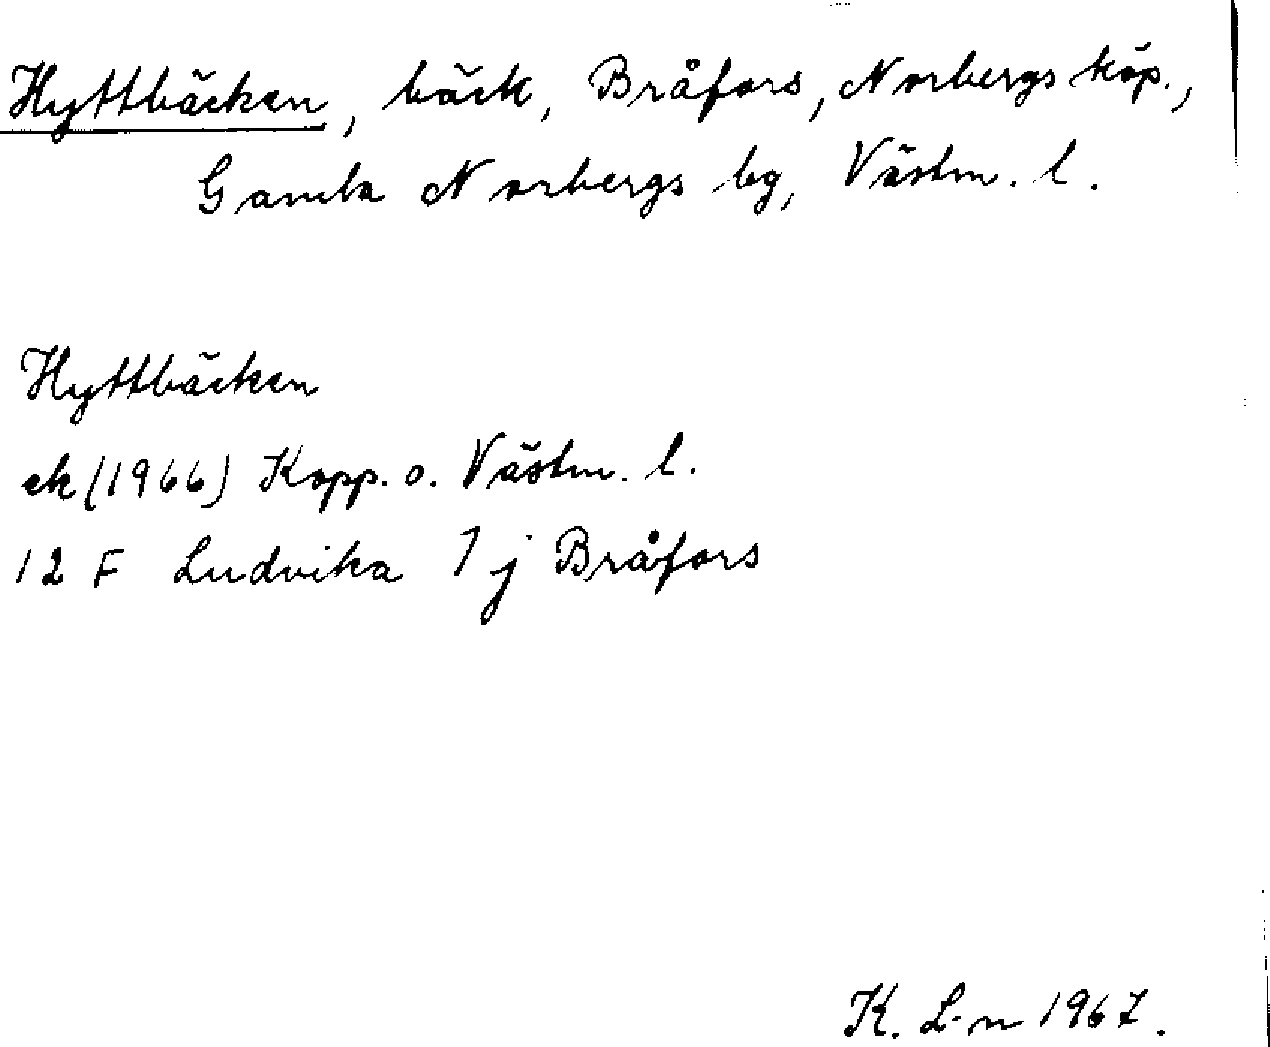 Hyttbäcken, bäck, Bråfors, Norbergs köp.,
Gamla Norbergs bg, Västm. l.
Hyttbäcken
ek (1966) Kopp. o. Västm. l.
12 F Ludvika 7 j Bråfors
K. L-n 1967.